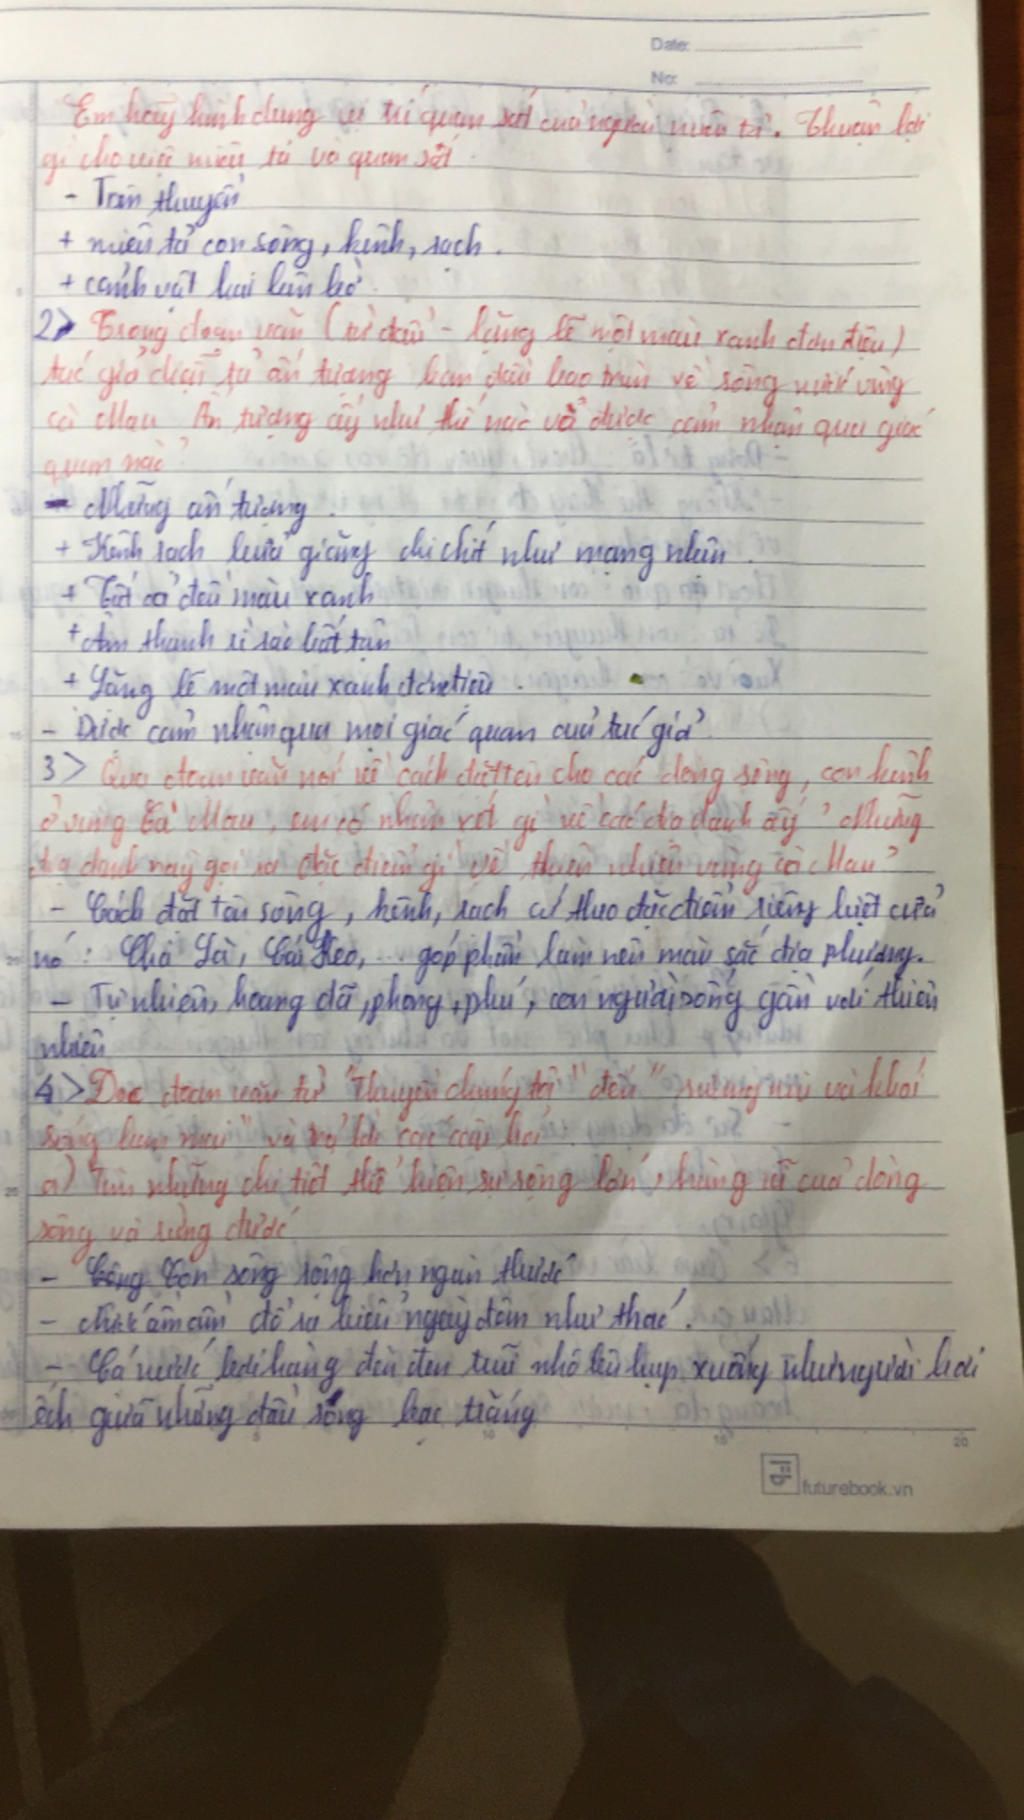 Date:
No:
Em hãy hình dung vị trí quan sát của người miêu tả. Thuận lợi
gì cho việc miêu tả và quan sát.
- Trên thuyền
+ miêu tả con sông, kênh, rạch.
+ cảnh vật hai bên bờ.
2> Trong đoạn văn (từ đầu - lặng lẽ một màu xanh đơn điệu)
tác giả diễn tả ấn tượng ban đầu bao trùm về sông nước vùng
cà Mau. Ấn tượng ấy như thế nào và được cảm nhận qua giác
quan nào?
- Những ấn tượng.
+ Kênh rạch bủa giăng chi chít như mạng nhện.
+ Tất cả đều màu xanh
+ Âm thanh rì rào bất tận
+ Lặng lẽ một màu xanh đơn điệu.
- Được cảm nhận qua mọi giác quan của tác giả.
3> Qua đoạn văn nói về cách đặt tên cho các dòng sông, con kênh
ở vùng Cà Mau, em có nhận xét gì về các địa danh ấy? Những
địa danh này gợi ra đặc điểm gì về thiên nhiên vùng cà Mau?
- Cách đặt tên sông, kênh, rạch cứ theo đặc điểm riêng biệt của
nó: Chà Là, Cái Keo,... góp phần làm nên màu sắc địa phương.
- Tự nhiên, hoang dã, phong, phú, con người sống gần với thiên
nhiên
4> Đọc đoạn văn từ "Thuyền chúng tôi" đến "sương mù và khói
sóng ban mai" và trả lời các câu hỏi.
a) Tìm những chi tiết thể hiện sự rộng lớn, hùng vĩ của dòng
sông và rừng đước
- Con sông rộng hơn ngàn thước
- nước ầm ầm đổ ra biển ngày đêm như thác.
- Cá nước bơi hàng đàn đen trũi nhô lên hụp xuống như người bơi
ếch giữa những đầu sóng bạc trắng
5 10 15 20
futurebook.vn